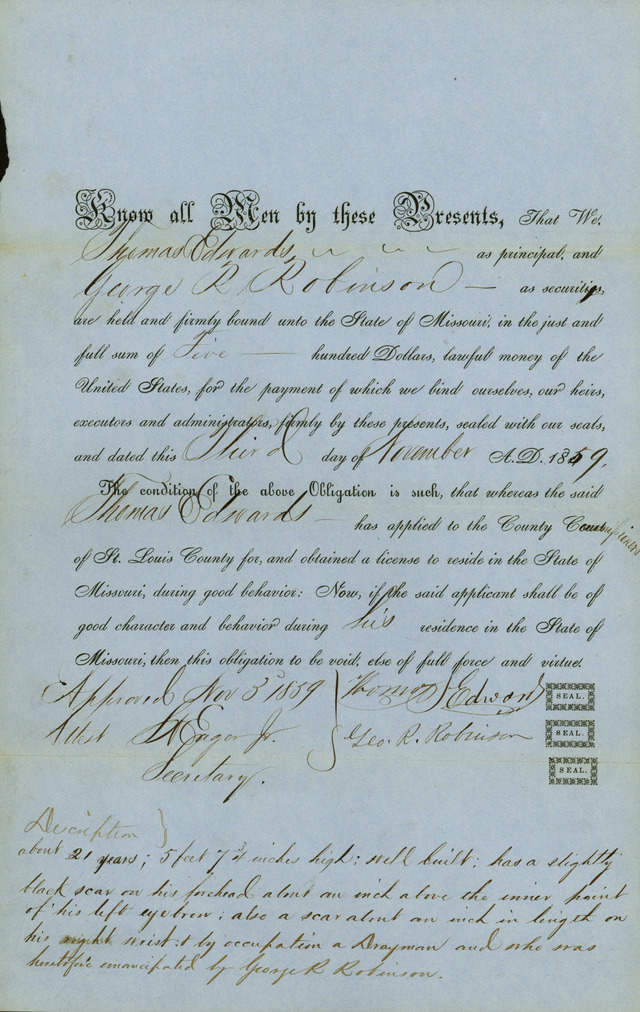 Know all Men by these Presents, That We,
Thomas Edwards, as principal, and
George R Robinson — as securities,
are held and firmly bound unto the State of Missouri, in the just and
full sum of Five — hundred Dollars, lawful money of the
United States, for the payment of which we bind ourselves, our heirs,
executors and administrators, firmly by these presents, sealed with our seals,
and dated this Third day of November A.D. 1859.
The condition of the above Obligation is such, that whereas the said
Thomas Edwards — has applied to the County
of St. Louis County for, and obtained a license to reside in the State of
Missouri, during good behavior: Now, if the said applicant shall be of
good character and behavior during his residence in the State of
Missouri, then this obligation to be void, else of full force and virtue.
Approved Nov 3d 1859 Thomas Edwards SEAL.
Attest Jr. Geo. R. Robinson SEAL.
Secretary. SEAL.
Description
about 21 years; 5 feet 7 inches high; well built; has a slightly
black scar on his forehead about an inch above the inner point
of his left eyebrow; also a scar about an inch in length on
his right wrist: & by occupation a Drayman and who was
heretofore emancipated by George R Robinson.